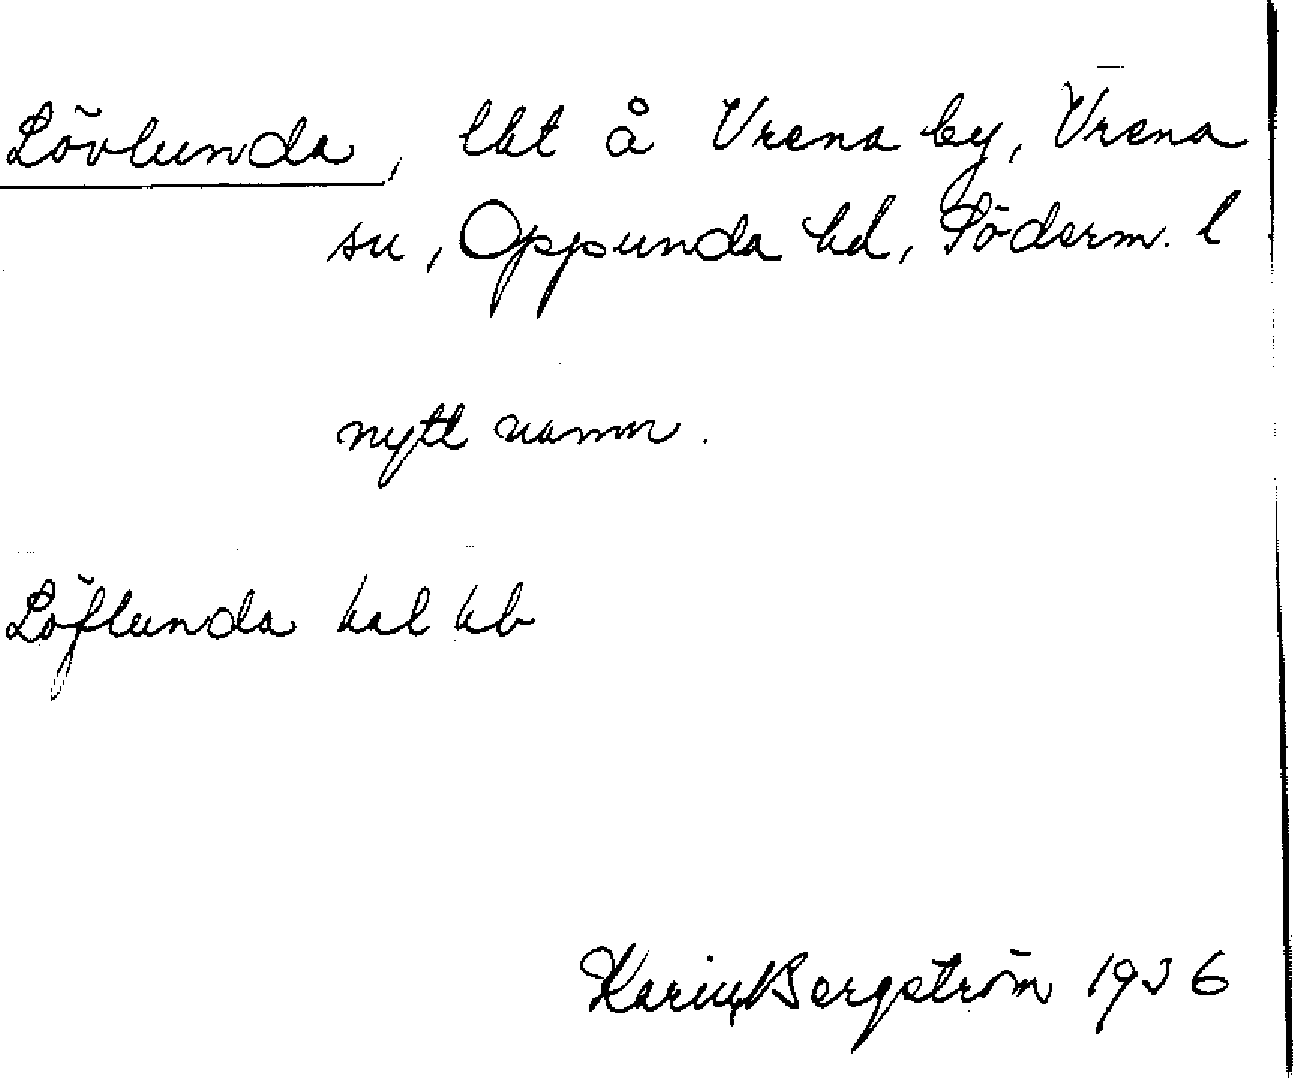 Lövlunda, lht å Vrena by, Vrena
sn, Oppunda hd, Söderm. l
nytt namn.
Löflunda hal hb
Karin Bergström 1936